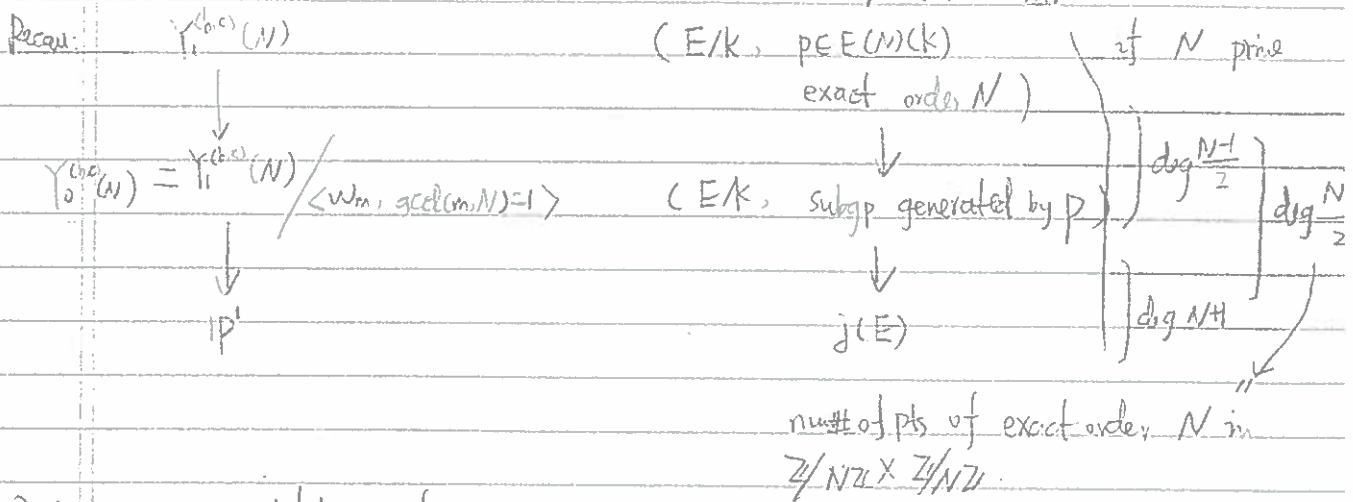 Recall: Y₁^(b,c)(N) (E/k, p∈E(N)(k) if N prime
exact order N)
Y₀^(b,c)(N) = Y₁^(b,c)(N) / <w_m, gcd(m,N)=1> (E/k, subgp generated by p) deg N-1/2 deg N/2
ℙ¹ j(E) deg N+1
num# of pts of exact order N in
ℤ/Nℤ × ℤ/Nℤ.